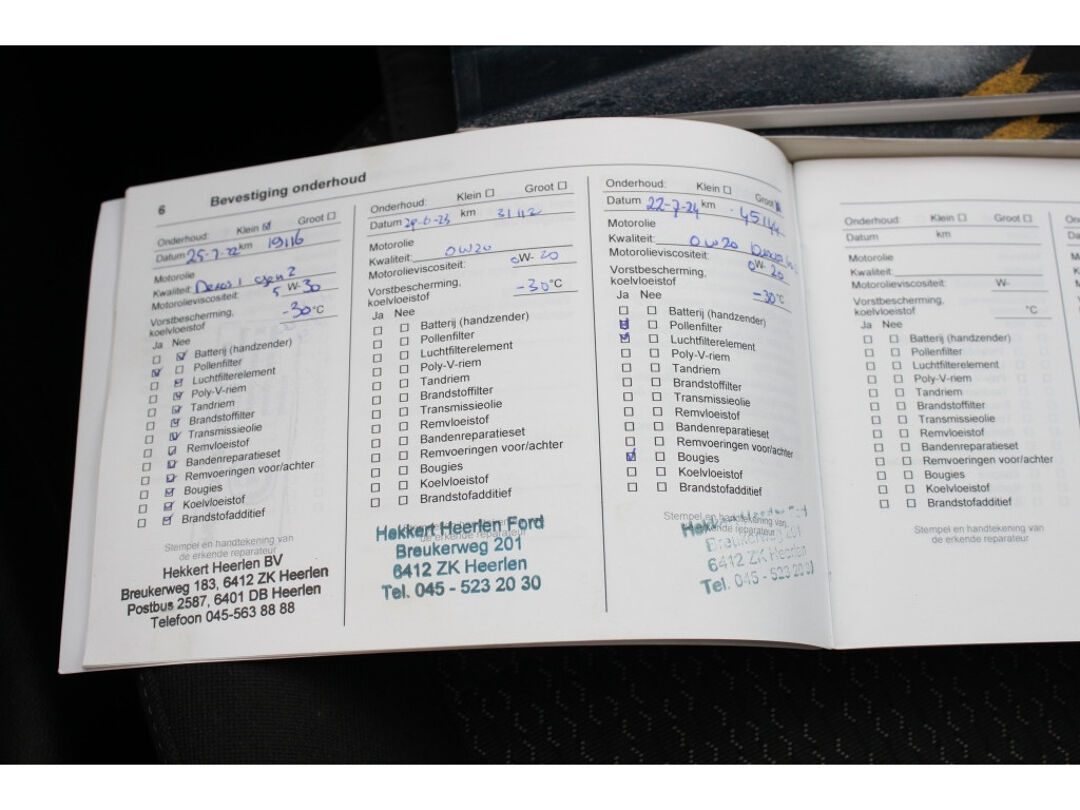 6 Bevestiging onderhoud
Onderhoud: Klein ☑ Groot ☐
Datum 25-7-22 km 19116
Motorolie
Kwaliteit: Dexos 1 Gen 2
Motorolieviscositeit: 5 W- 30
Vorstbescherming, -30 °C
koelvloeistof
Ja Nee
☐ ☑ Batterij (handzender)
☑ ☐ Pollenfilter
☐ ☑ Luchtfilterelement
☐ ☑ Poly-V-riem
☐ ☑ Tandriem
☐ ☑ Brandstoffilter
☐ ☑ Transmissieolie
☐ ☑ Remvloeistof
☐ ☑ Bandenreparatieset
☐ ☑ Remvoeringen voor/achter
☐ ☑ Bougies
☐ ☑ Koelvloeistof
☐ ☑ Brandstofadditief
Stempel en handtekening van
de erkende reparateur
Hekkert Heerlen BV
Breukerweg 183, 6412 ZK Heerlen
Postbus 2587, 6401 DB Heerlen
Telefoon 045-563 88 88
Onderhoud: Klein ☐ Groot ☐
Datum 29-6-23 km 31112
Motorolie
Kwaliteit: 0W20
Motorolieviscositeit: 0W- 20
Vorstbescherming, -30 °C
koelvloeistof
Ja Nee
☐ ☐ Batterij (handzender)
☐ ☐ Pollenfilter
☐ ☐ Luchtfilterelement
☐ ☐ Poly-V-riem
☐ ☐ Tandriem
☐ ☐ Brandstoffilter
☐ ☐ Transmissieolie
☐ ☐ Remvloeistof
☐ ☐ Bandenreparatieset
☐ ☐ Remvoeringen voor/achter
☐ ☐ Bougies
☐ ☐ Koelvloeistof
☐ ☐ Brandstofadditief
Hekkert Heerlen Ford
Breukerweg 201
6412 ZK Heerlen
Tel. 045 - 523 20 30
Onderhoud: Klein ☐ Groot ☑
Datum 22-7-24 km 45144
Motorolie
Kwaliteit: 0W20
Motorolieviscositeit: 0W- 20
Vorstbescherming, -30 °C
koelvloeistof
Ja Nee
☐ ☐ Batterij (handzender)
☑ ☐ Pollenfilter
☑ ☐ Luchtfilterelement
☐ ☐ Poly-V-riem
☐ ☐ Tandriem
☐ ☐ Brandstoffilter
☐ ☐ Transmissieolie
☐ ☐ Remvloeistof
☐ ☐ Bandenreparatieset
☐ ☐ Remvoeringen voor/achter
☑ ☐ Bougies
☐ ☐ Koelvloeistof
☐ ☐ Brandstofadditief
Stempel en handtekening van
erkende reparateur
Breukerweg 201
6412 ZK Heerlen
Tel. 045 - 523 20 30
Onderhoud: Klein ☐ Groot ☐
Datum km
Motorolie
Kwaliteit:
Motorolieviscositeit: W-
Vorstbescherming,
koelvloeistof °C
Ja Nee
☐ ☐ Batterij (handzender)
☐ ☐ Pollenfilter
☐ ☐ Luchtfilterelement
☐ ☐ Poly-V-riem
☐ ☐ Tandriem
☐ ☐ Brandstoffilter
☐ ☐ Transmissieolie
☐ ☐ Remvloeistof
☐ ☐ Bandenreparatieset
☐ ☐ Remvoeringen voor/achter
☐ ☐ Bougies
☐ ☐ Koelvloeistof
☐ ☐ Brandstofadditief
Stempel en handtekening van
de erkende reparateur